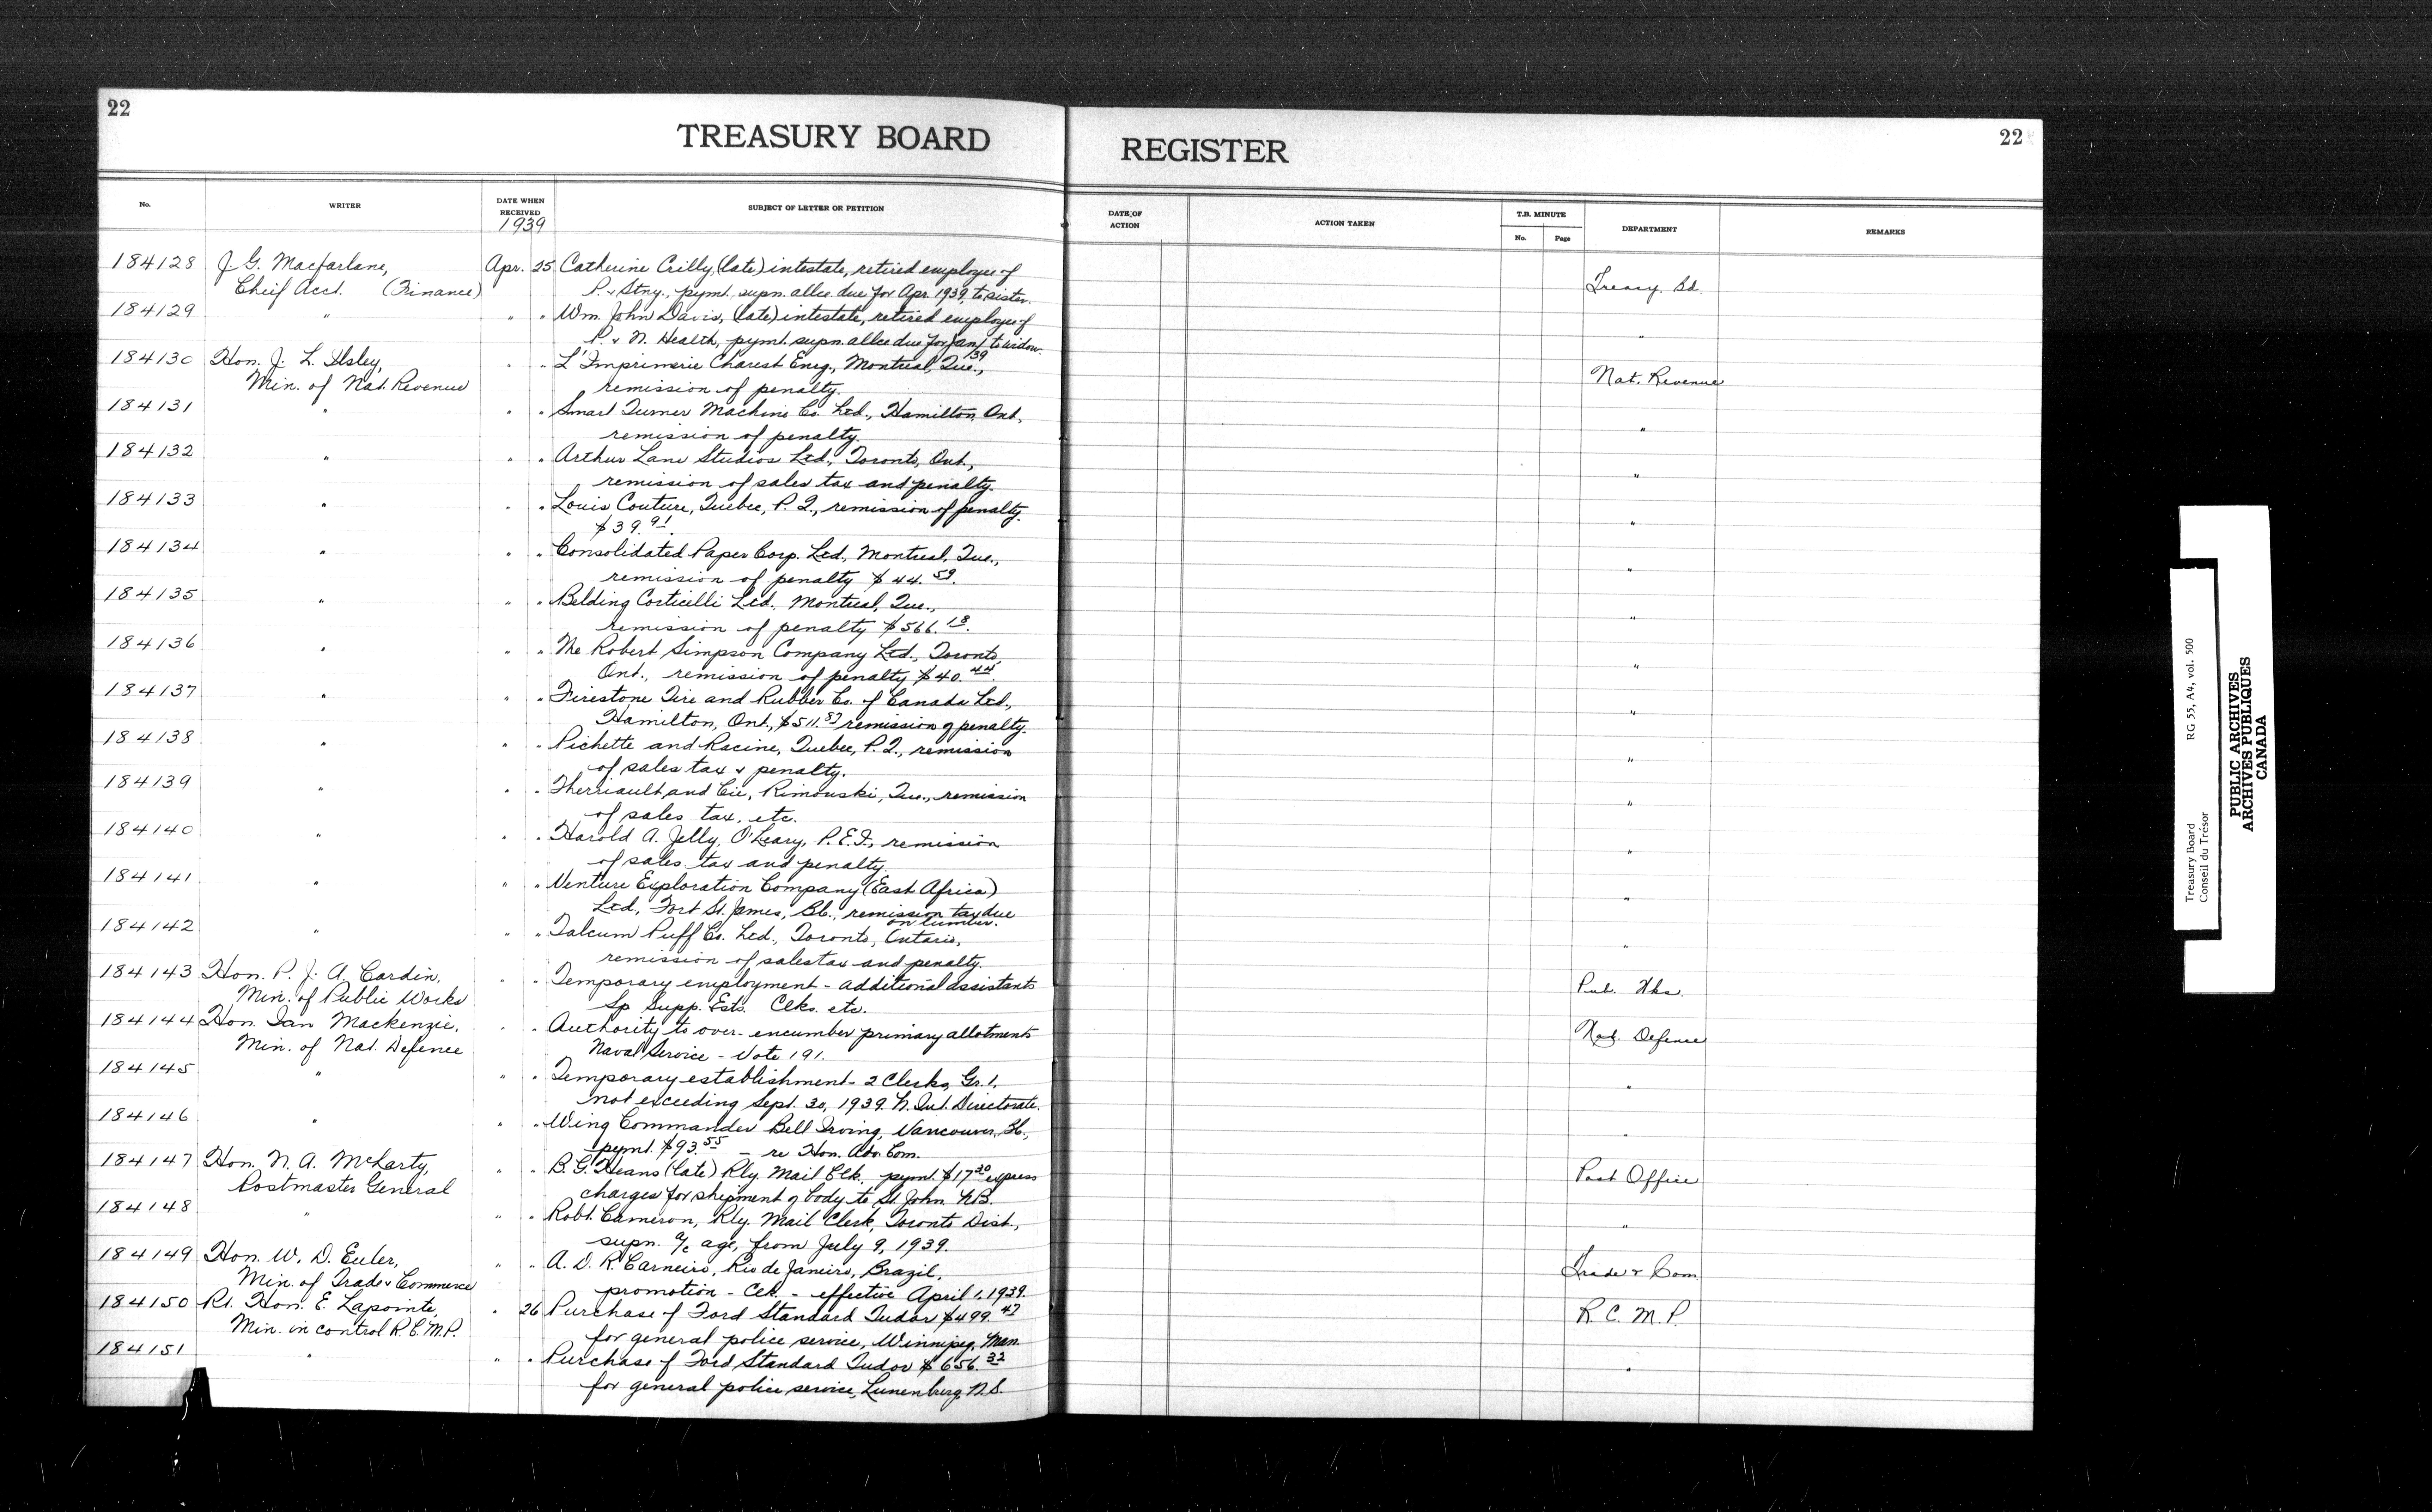 22
TREASURY BOARD
REGISTER
22
No.
WRITER
DATE WHEN RECEIVED
1939
SUBJECT OF LETTER OR PETITION
DATE OF ACTION
ACTION TAKEN
T.B. MINUTE
No.
Page
DEPARTMENT
REMARKS
184128 J. G. Macfarlane, Apr. 25 Catherine Crilly, (late) intestate, retired employee of
Cheif Acct. (Finance) P. & Stny., pymt. supn. allce due for Apr. 1939, to sister. Treasy. Bd.
184129 " " " Wm. John Davis, (late) intestate, retired employee of
P. & N. Health, pymt. supn. allce due for Jan/39 to widow. "
184130 Hon. J. L. Ilsley, " " L'Imprimerie Charest Enrg., Montreal, Que.,
Min. of Nat. Revenue remission of penalty. Nat. Revenue
184131 " " " Smart Turner Machine Co. Ltd., Hamilton, Ont.,
remission of penalty. "
184132 " " " Arthur Lane Studios Ltd., Toronto, Ont.,
remission of sales tax and penalty. "
184133 " " " Louis Couture, Quebec, P.Q., remission of penalty.
$39.91. "
184134 " " " Consolidated Paper Corp. Ltd., Montreal, Que.,
remission of penalty $44.59. "
184135 " " " Belding Corticelli Ltd., Montreal, Que.,
remission of penalty $566.18. "
184136 " " " The Robert Simpson Company Ltd., Toronto,
Ont., remission of penalty $40.44. "
184137 " " " Firestone Tire and Rubber Co. of Canada Ltd.,
Hamilton, Ont., $511.87 remission of penalty. "
184138 " " " Pichette and Racine, Quebec, P.Q., remission
of sales tax & penalty. "
184139 " " " Therriault and Cie, Rimouski, Que., remission
of sales tax, etc. "
184140 " " " Harold A. Jelly, O'Leary, P.E.I., remission
of sales tax and penalty. "
184141 " " " Venture Exploration Company (East Africa)
Ltd., Fort St. James, B.C., remission tax due on lumber. "
184142 " " " Talcum Puff Co. Ltd., Toronto, Ontario,
remission of sales tax and penalty. "
184143 Hon. P. J. A. Cardin, " " Temporary employment - additional assistants
Min. of Public Works Sp Supp. Ests. Clks. etc. Pub. Wks.
184144 Hon. Ian Mackenzie, " " Authority to over-encumber primary allotments
Min. of Nat. Defence Naval Service - Vote 191. Nat. Defence
184145 " " " Temporary establishment - 2 Clerks, Gr. 1,
not exceeding Sept. 30, 1939. N. Int. Directorate. "
184146 " " " Wing Commander Bell Irving, Vancouver, B.C.,
pymt. $93.55 - re Hon. Adv. Com. "
184147 Hon. N. A. McLarty, " " B. G. Heans (late) Rly. Mail Clk., pymt. $17.30 express
Postmaster General charges for shipment of body to St. John N.B. Post Office
184148 " " " Robt. Cameron, Rly. Mail Clerk, Toronto Dist.,
supn. a/c age, from July 9, 1939. "
184149 Hon. W. D. Euler, " " A. D. R. Carneiro, Rio de Janeiro, Brazil,
Min. of Trade & Commerce promotion - Clk. - effective April 1, 1939. Trade & Com.
184150 Rt. Hon. E. Lapointe, " 26 Purchase of Ford Standard Tudor $499.47
Min. in control R.C.M.P. for general police service, Winnipeg, Man. R.C.M.P.
184151 " " " Purchase of Ford Standard Tudor $656.32
for general police service, Lunenburg, N.S. "
Treasury Board
Conseil du Trésor
RG 55, A4, vol. 500
PUBLIC ARCHIVES
ARCHIVES PUBLIQUES
CANADA